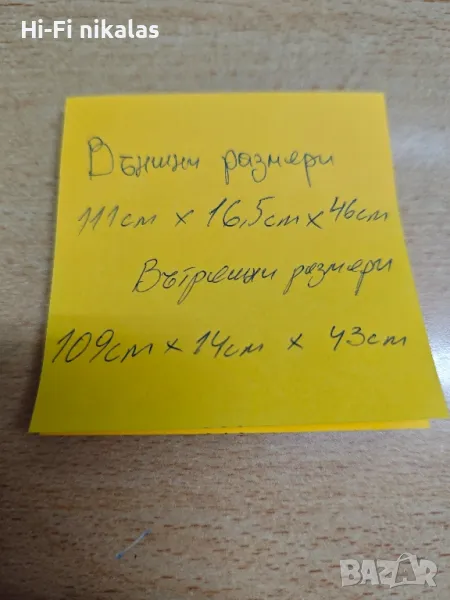 Hi-Fi nikalas
Външни размери
111см x 16,5см x 46см
Вътрешни размери
109см x 14см x 43см
BAZAR